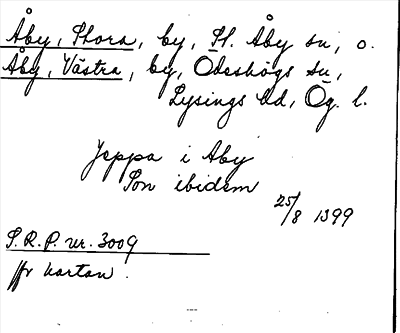 Åby, Stora, by, St. Åby sn, o.
Åby, Västra, by, Ödeshögs sn,
Lysings hd, Ög. l.
Jeppa i Aby
Son ibidem
25/8 1399
S.R.P. nr. 3009
jfr kartan.